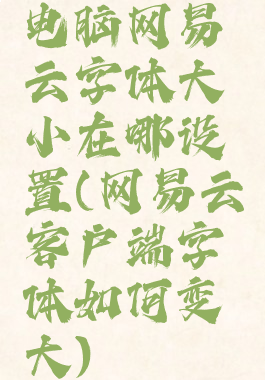 电脑网易
云字体大
小在哪设
置(网易云
客户端字
体如何变
大)